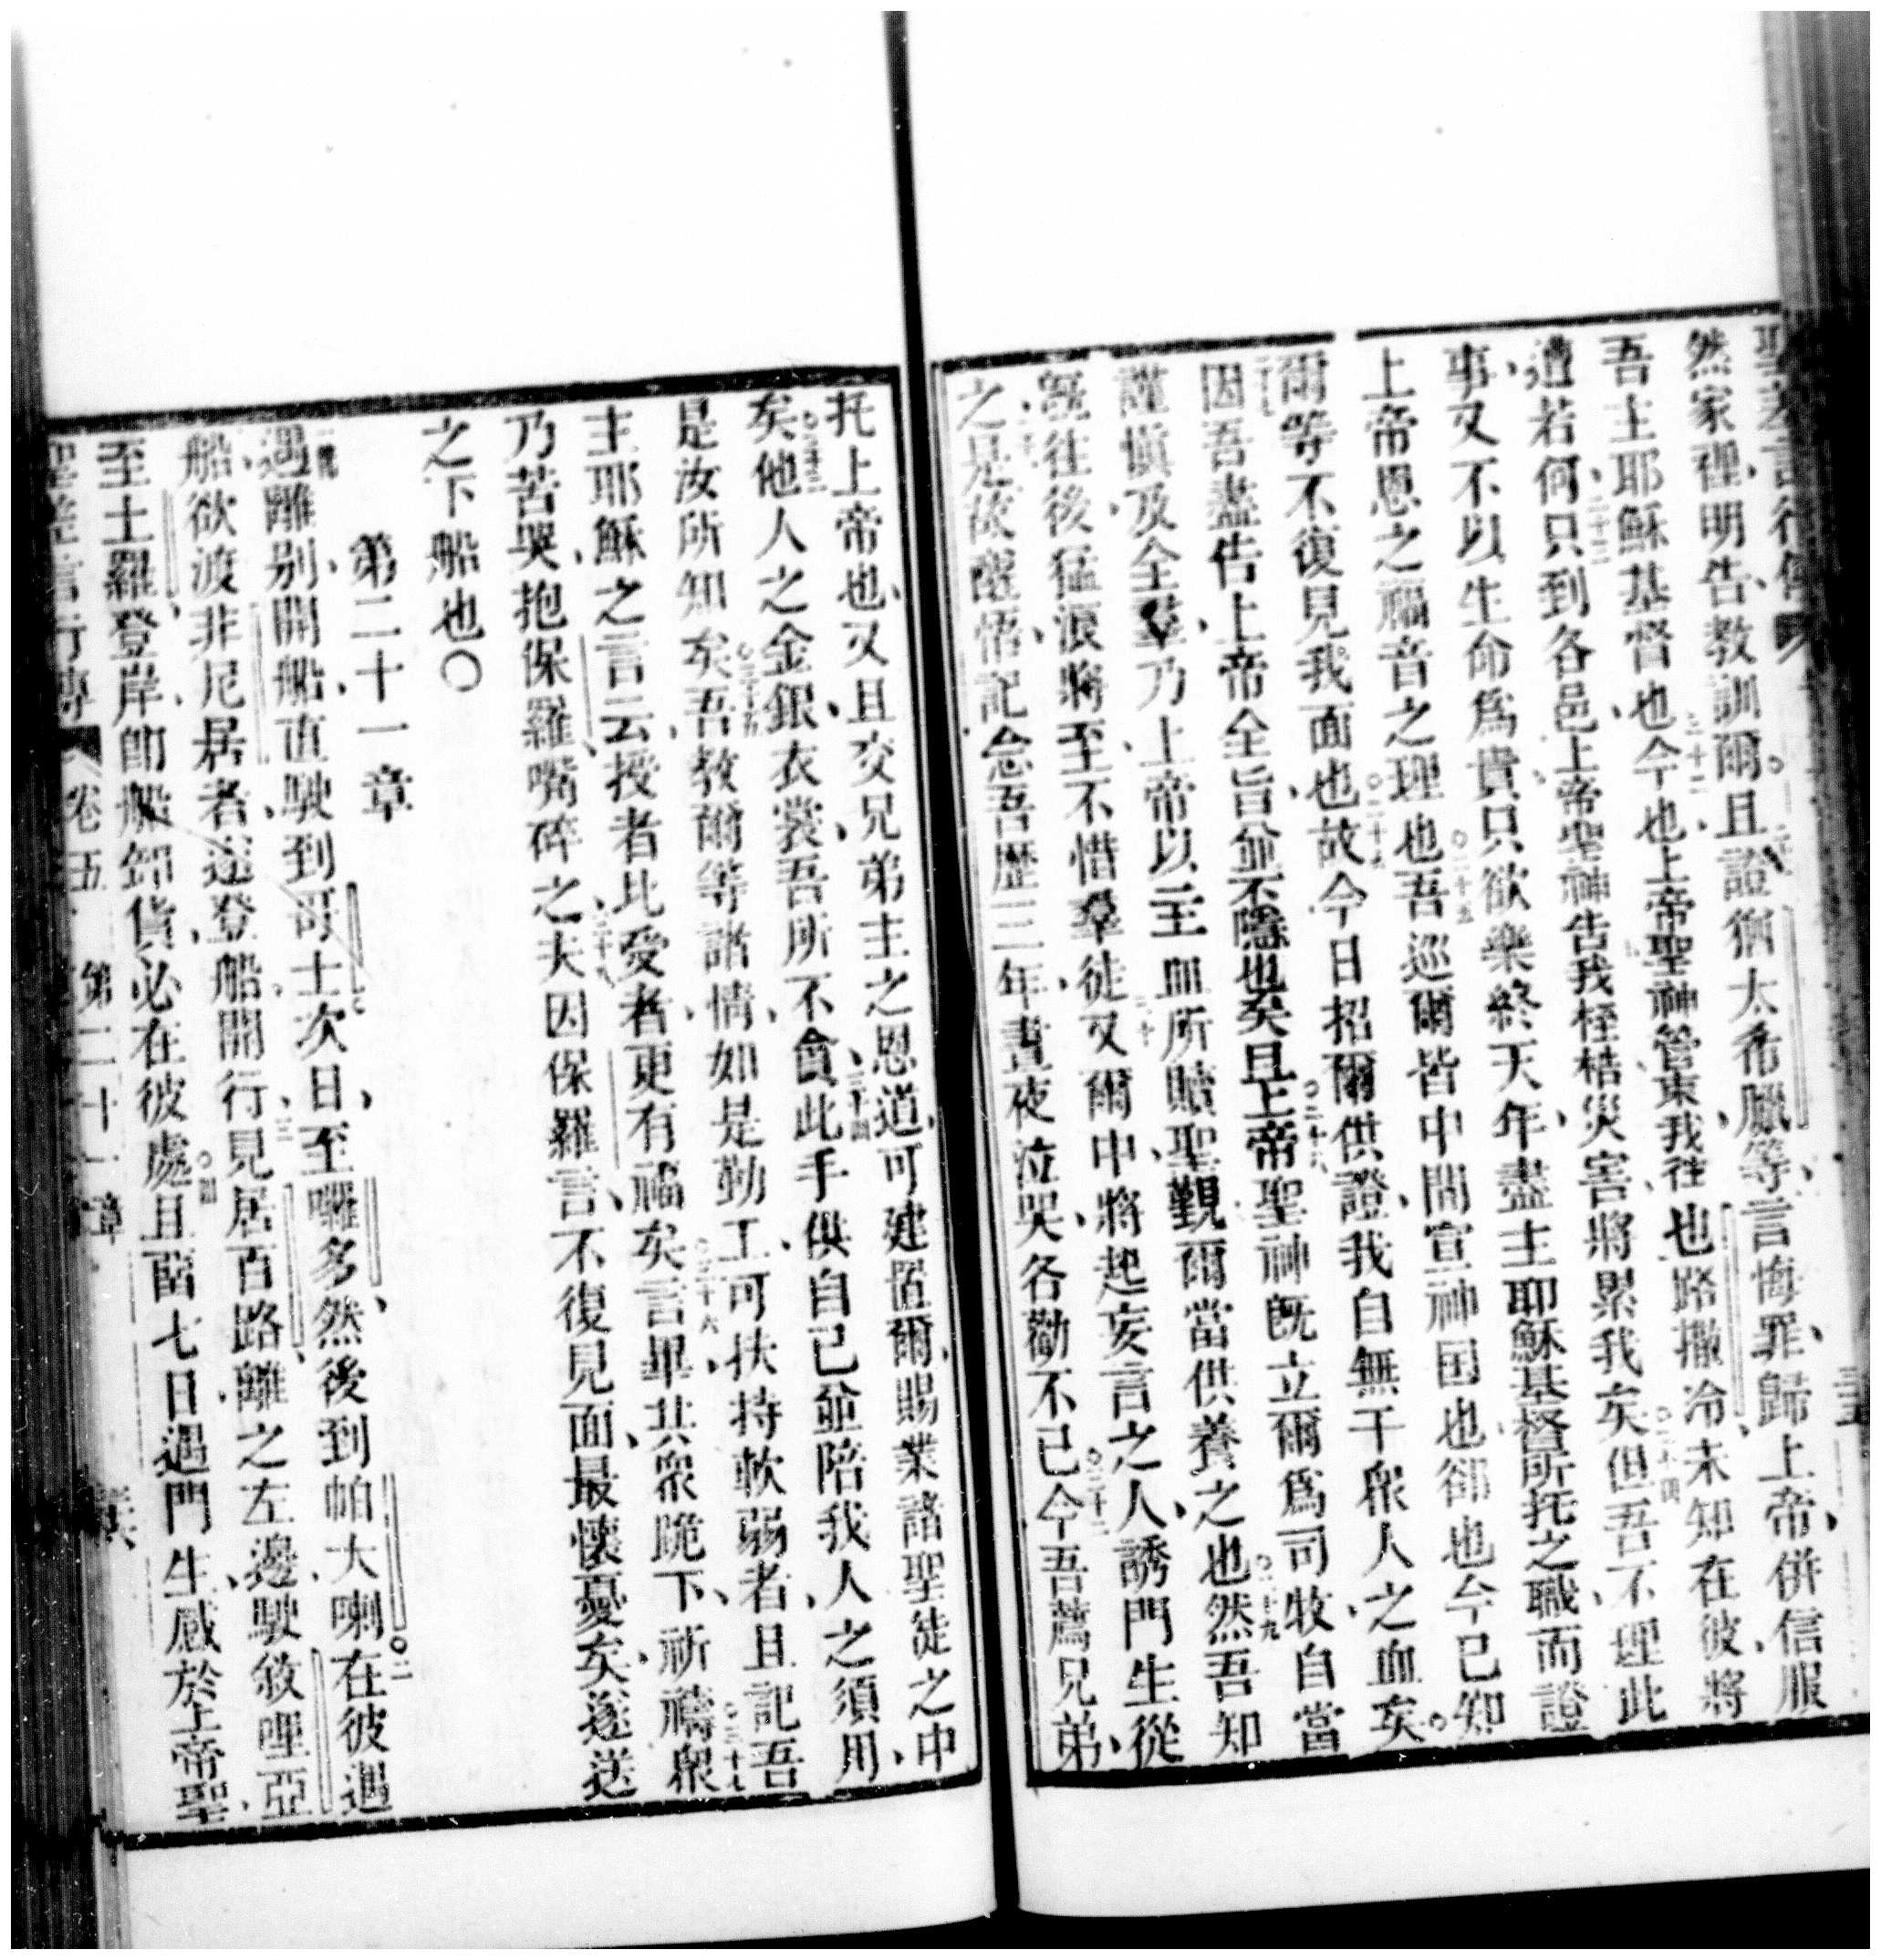 聖差言行傳
然家裡、明告、教訓爾、且證猶太希臘等言、悔罪歸上帝、併信服
吾主耶穌基督也、二十二今也、上帝聖神管束我、往也路撒冷、未知在彼、將
遭若何、二十三只到各邑、上帝聖神告我桎梏災害將累我矣、二十四但吾不理此
事、又不以生命爲貴、只欲樂終天年、盡主耶穌基督所托之職、而證
上帝恩之福音之理也、二十五吾巡爾皆中間、宣神国也、卻也今已知
爾等不復見我面也、二十六故今日招爾供證、我自無干衆人之血矣、
二十七因吾盡告上帝全旨、並不隱也矣、二十八且上帝聖神既立爾爲司牧、自當
謹慎、及全羣、乃上帝以主血所贖聖觀、爾當供養之也、二十九然吾知
既往後、猛浪將至、不惜羣徒、三十又爾中、將起妄言之人、誘門生從
之、三十一是故醒悟、記念吾歷三年、晝夜泣哭、各勸不已、三十二今吾薦兄弟、
托上帝也、又且交兄弟主之恩道、可建置爾、賜業諸聖徒之中
矣、三十三他人之金銀、衣裳、吾所不貪、三十四此手供自已並陪我人之須用、
是汝所知矣、三十五吾教爾等諸情、如是勤工、可扶持軟弱者、且記吾
主耶穌之言云、授者比受者、更有福矣、三十六言畢、共衆跪下祈禱、三十七衆
乃苦哭、抱保羅嘴碎之、三十八夫因保羅言、不復見面、最懷憂矣、遂送
之下船也〇
第二十一章
一既遇離别、開船、直駛到哥士、次日、至囉多、然後到帕大喇、二在彼遇
船、欲渡非尼居者、遂登船開行、三見居百路、離之左邊、駛敘哩亞、
至土羅、登岸、卽船卸貨、必在彼處、四且㽞七日、遇門生、感於上帝聖
聖差言行傳 卷五 第二十一章